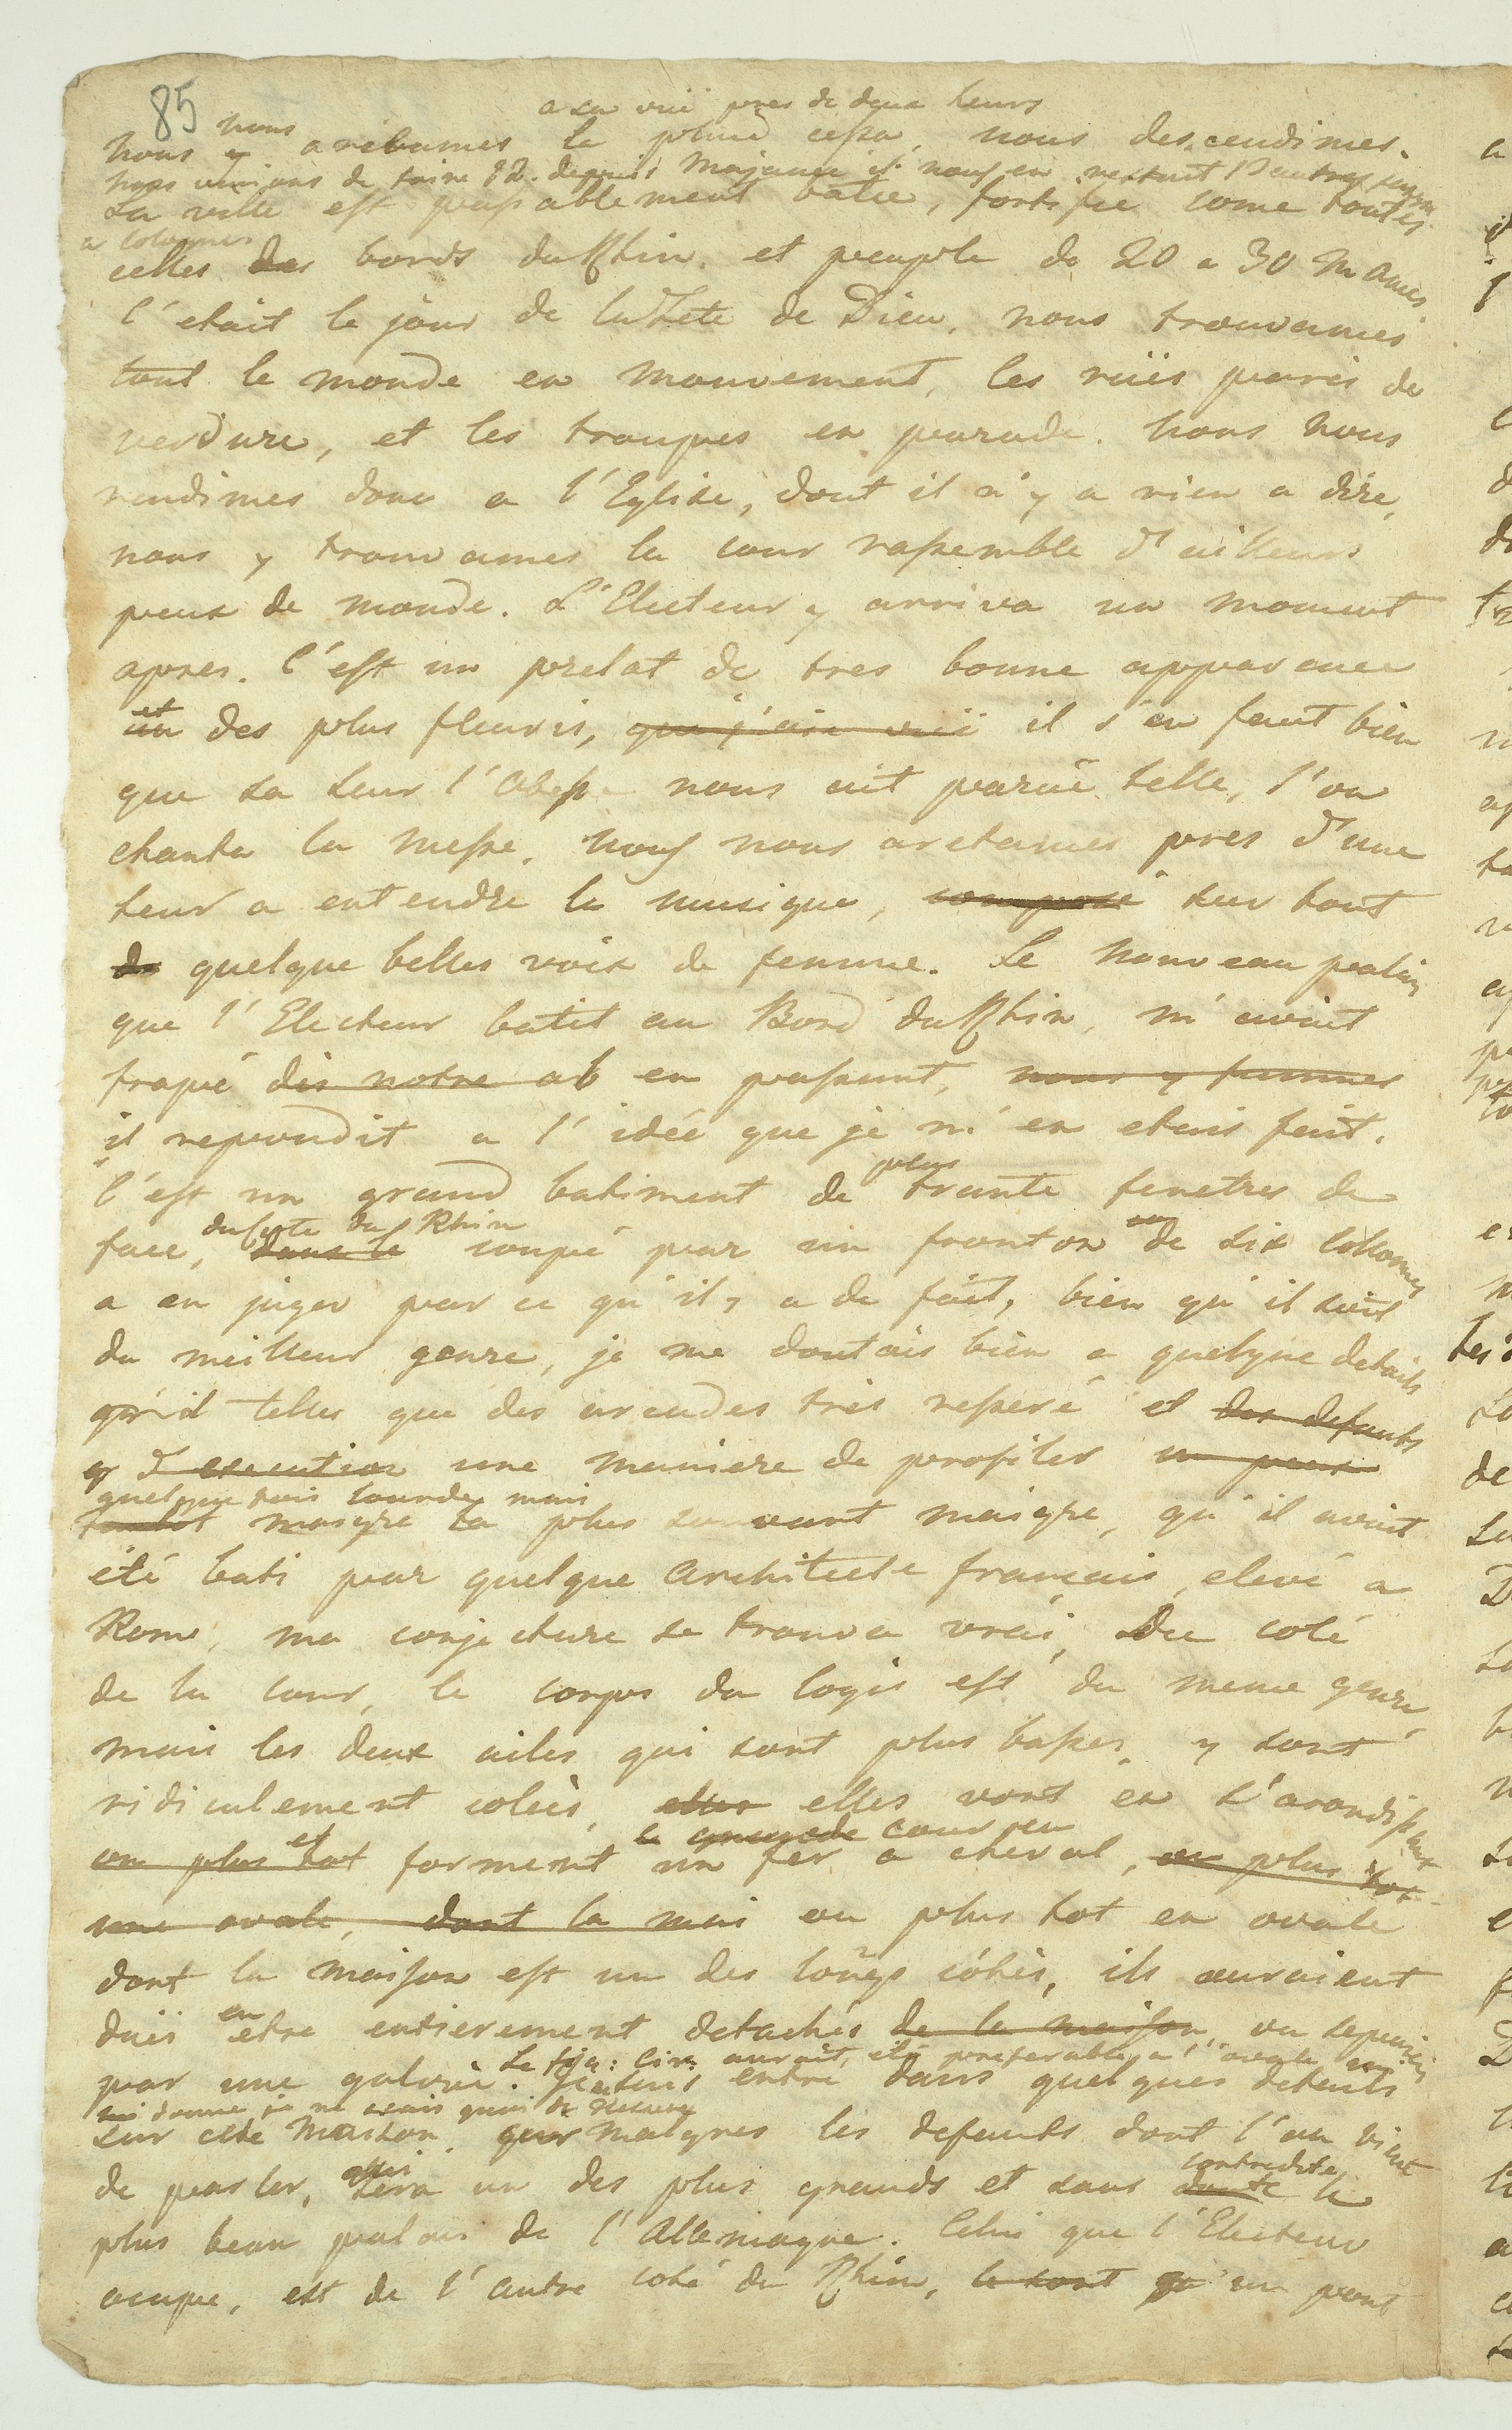 85
a sa vuë pres de deux heurs
nous
nous y aretames la pluie cessa, nous descendimes.
nous venions de faire 12. depuis Majance et nous en restait d'autres
La ville est passablement batie, fortifiée come toutes
a Cologne
celles des bords du Rhin. et peuplé de 20 a 30 m ames
c'etait le jour de la Fete de Dieu, nous trouvames
tout le monde en mouvement, les ruës parés de
verdure, et les troupes en parade. nous nous
rendimes donc a l'Eglise, dont il n'y a rien a dire,
nous y trouvames la cour rassemble d'ailleurs
peux de monde. L'Electeur y arriva un moment
apres. C'est un prelat de tres bonne apparence
et
un des plus fleuris, que j'aie vuë il s'en faut bien
que sa seur l'Abesse nous ait paruë telle, l'on
chanta la messe, nous nous aretames pres d'une
heur a entendre la musique, composé sur tout
de quelque belles voix de femme. Le nouveau palais
que l'Electeur batit au Bord du Rhin, m'avait
frapé dès notre ab en passant, nous y fumes
il repondit a l'idée que je m'en etais fait.
plus
C'est un grand batiment de trante fenetres de
du cote du Rhin
face, dans le coupé par un fronton de six collonnes
a en juger par ce qu'il y a de fait, bien qu'il soit
du meilleur genre, je me doutais bien a quelque details
qu'il telles que des arcades très resseré et des defauts
d'execution une maniere de profiler un peux
quelque fois lourde mais
tantot maigre la plus souvant maigre, qu'il avait
été bati par quelque Architecte français, elevé a
Rome, ma conjecture se trouva vrai, Du coté
de la cour, le corps du logis est du meme genre,
mais les deux ailes qui sont plus basses, y sont
ridiculement colées, elles elles vont en s'arondissant
et la grande cour en
ou plus tot forment un fer a cheval, ou plus tot
une ovale, dont la mai ou plus tot en ovale
dont la maison est un des longs côtés, ils auraient
en
duës etre entierement detachés de la maison, ou separés
Le fer: Cir: aurait, été preferable, a l'ovale qui
par une galerie. Je suis entré dans quelques details
lui donne je ne scais quoi de
sur cete maison, que malgres les defauts dont l'on vient
qui contredite
de parler, sera un des plus grands et sans doute le
plus beau palais de l'Allemagne. Celui que l'Electeur
ocupe, est de l'autre coté du Rhin, le pont un pont